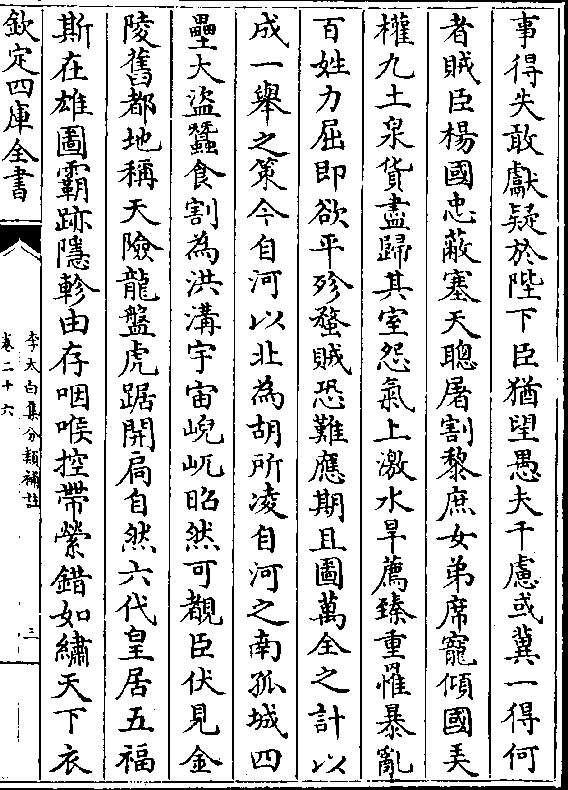 事得失敢獻疑於陛下臣猶望愚夫千慮或冀一得何
者賊臣楊國忠蔽塞天聰屠割黎庶女弟席寵傾國弄
權九土泉貨盡歸其室怨氣上激水旱薦臻重罹暴亂
百姓力屈即欲平殄蝥賊恐難應期且圖萬全之計以
成一舉之策今自河以北為胡所凌自河之南孤城四
壘大盜蠶食割為洪溝宇宙嶬屼昭然可覩臣伏見金
陵舊都地稱天險龍盤虎踞開扃自然六代皇居五福
斯在雄圖霸跡隱軫由存咽喉控帶縈錯如繡天下衣
欽定四庫全書
李太白集分類補註
卷二十六
三